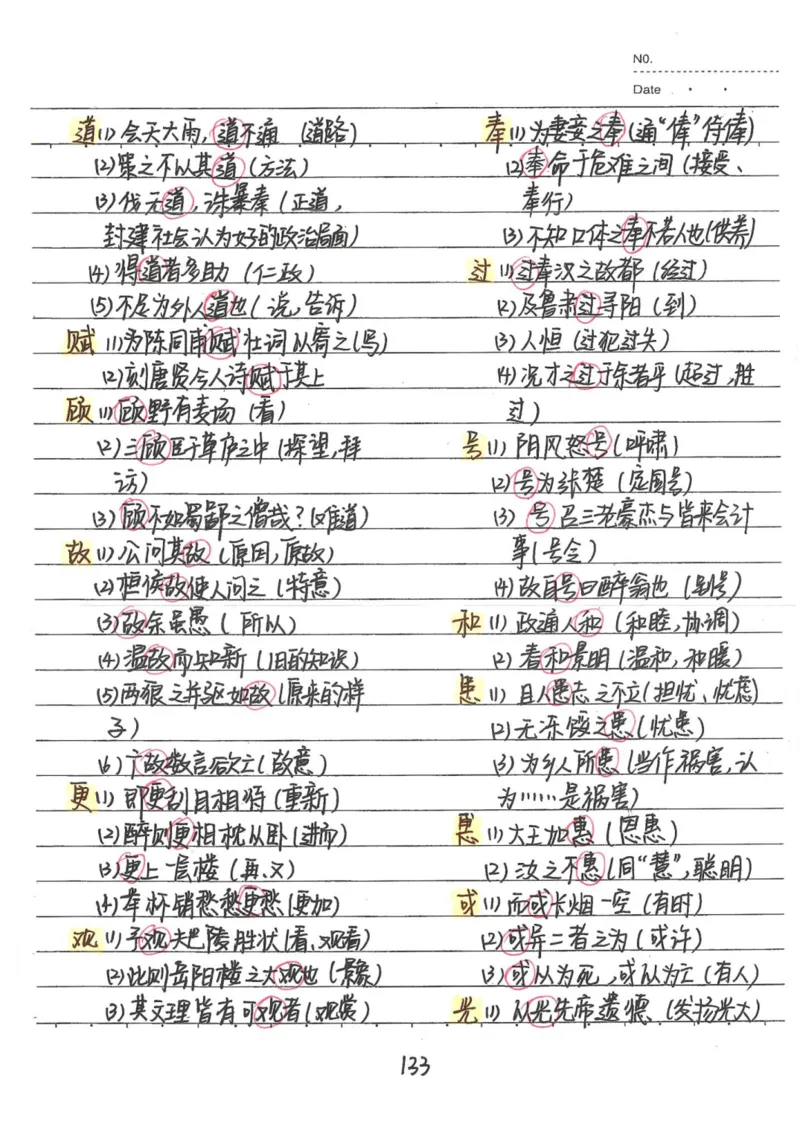 NO.
Date
道(1)会天大雨,道不通 (道路)
(2)策之不以其道(方法)
(3)伐无道,诛暴秦(正道,
封建社会认为好的政治局面)
(4)得道者多助(仁政)
(5)不足为外人道也(说,告诉)
赋(1)为陈同甫赋壮词以寄之(写)
(2)刻唐贤今人诗赋于其上
顾(1)顾野有麦场(看)
(2)三顾臣于草庐之中(探望,拜
访)
(3)顾不如蜀鄙之僧哉?(难道)
故(1)公问其故(原因,原故)
(2)桓侯故使人问之(特意)
(3)故余虽愚(所以)
(4)温故而知新(旧的知识)
(5)两狼之并驱如故(原来的样
子)
(6)广故数言欲亡(故意)
更(1)即更刮目相待(重新)
(2)醉则更相枕以卧(进而)
(3)更上一层楼(再、又)
(4)举杯销愁愁更愁(更加)
观(1)予观夫巴陵胜状(看、观看)
(2)此则岳阳楼之大观也(景象)
(3)其文理皆有可观者(观赏)
奉(1)为妻妾之奉(通“俸”侍俸)
(2)奉命于危难之间(接受、
奉行)
(3)不知口体之奉不若人也(供养)
过(1)过奉汉之故都(经过)
(2)及鲁肃过寻阳(到)
(3)人恒(过犯过失)
(4)况才之过于余者乎(超过,胜
过)
号(1)阴风怒号(呼肃)
(2)号为张楚(定国号)
(3)号召三老豪杰与皆来会计
事(号令)
(4)故自号曰醉翁也(别号)
和(1)政通人和(和睦,协调)
(2)春和景明(温和,和暖)
患(1)且人愚志之不立(担忧、忧虑)
(2)无冻馁之患(忧患)
(3)为乡人所患(当作祸害,认
为……是祸害)
惠(1)大王加惠(恩惠)
(2)汝之不惠(同“慧”,聪明)
或(1)而或长烟一空(有时)
(2)或异二者之为(或许)
(3)或以为死,或以为亡(有人)
光(1)以光先帝遗德(发扬光大)
133